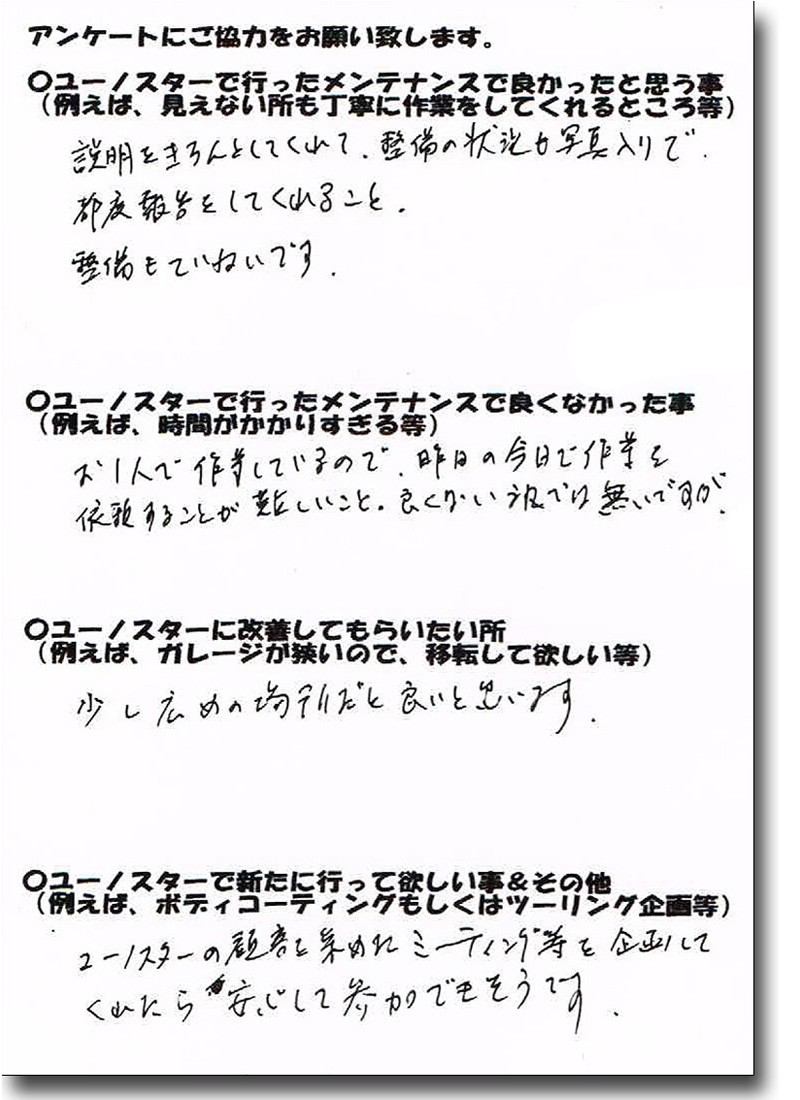 アンケートにご協力をお願い致します。
〇ユーノスターで行ったメンテナンスで良かったと思う事
（例えば、見えない所も丁寧に作業をしてくれるところ等）
説明をきちんとしてくれて、整備の状況も写真入りで、
都度報告をしてくれること。
整備もていねいです。
〇ユーノスターで行ったメンテナンスで良くなかった事
（例えば、時間がかかりすぎる等）
お1人で作業しているので、昨日の今日で作業を
依頼することが難しいこと。良くない訳では無いですが、
〇ユーノスターに改善してもらいたい所
（例えば、ガレージが狭いので、移転して欲しい等）
少し広めの場所だと良いと思います。
〇ユーノスターで新たに行って欲しい事＆その他
（例えば、ボディコーティングもしくはツーリング企画等）
ユーノスターの顧客を集めたミーティング等を企画して
くれたら安心して参加できそうです。